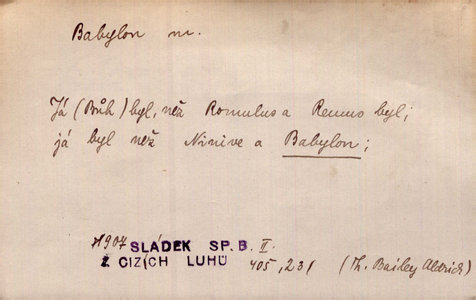 Babylon m.
Já (Bůh) byl, než Romulus a Remus byl;
já byl než Ninive a Babylon;
1907 SLÁDEK SP. B. II.
Z CIZÍCH LUHŮ 405, 231 (Th. Bailey Aldrich)